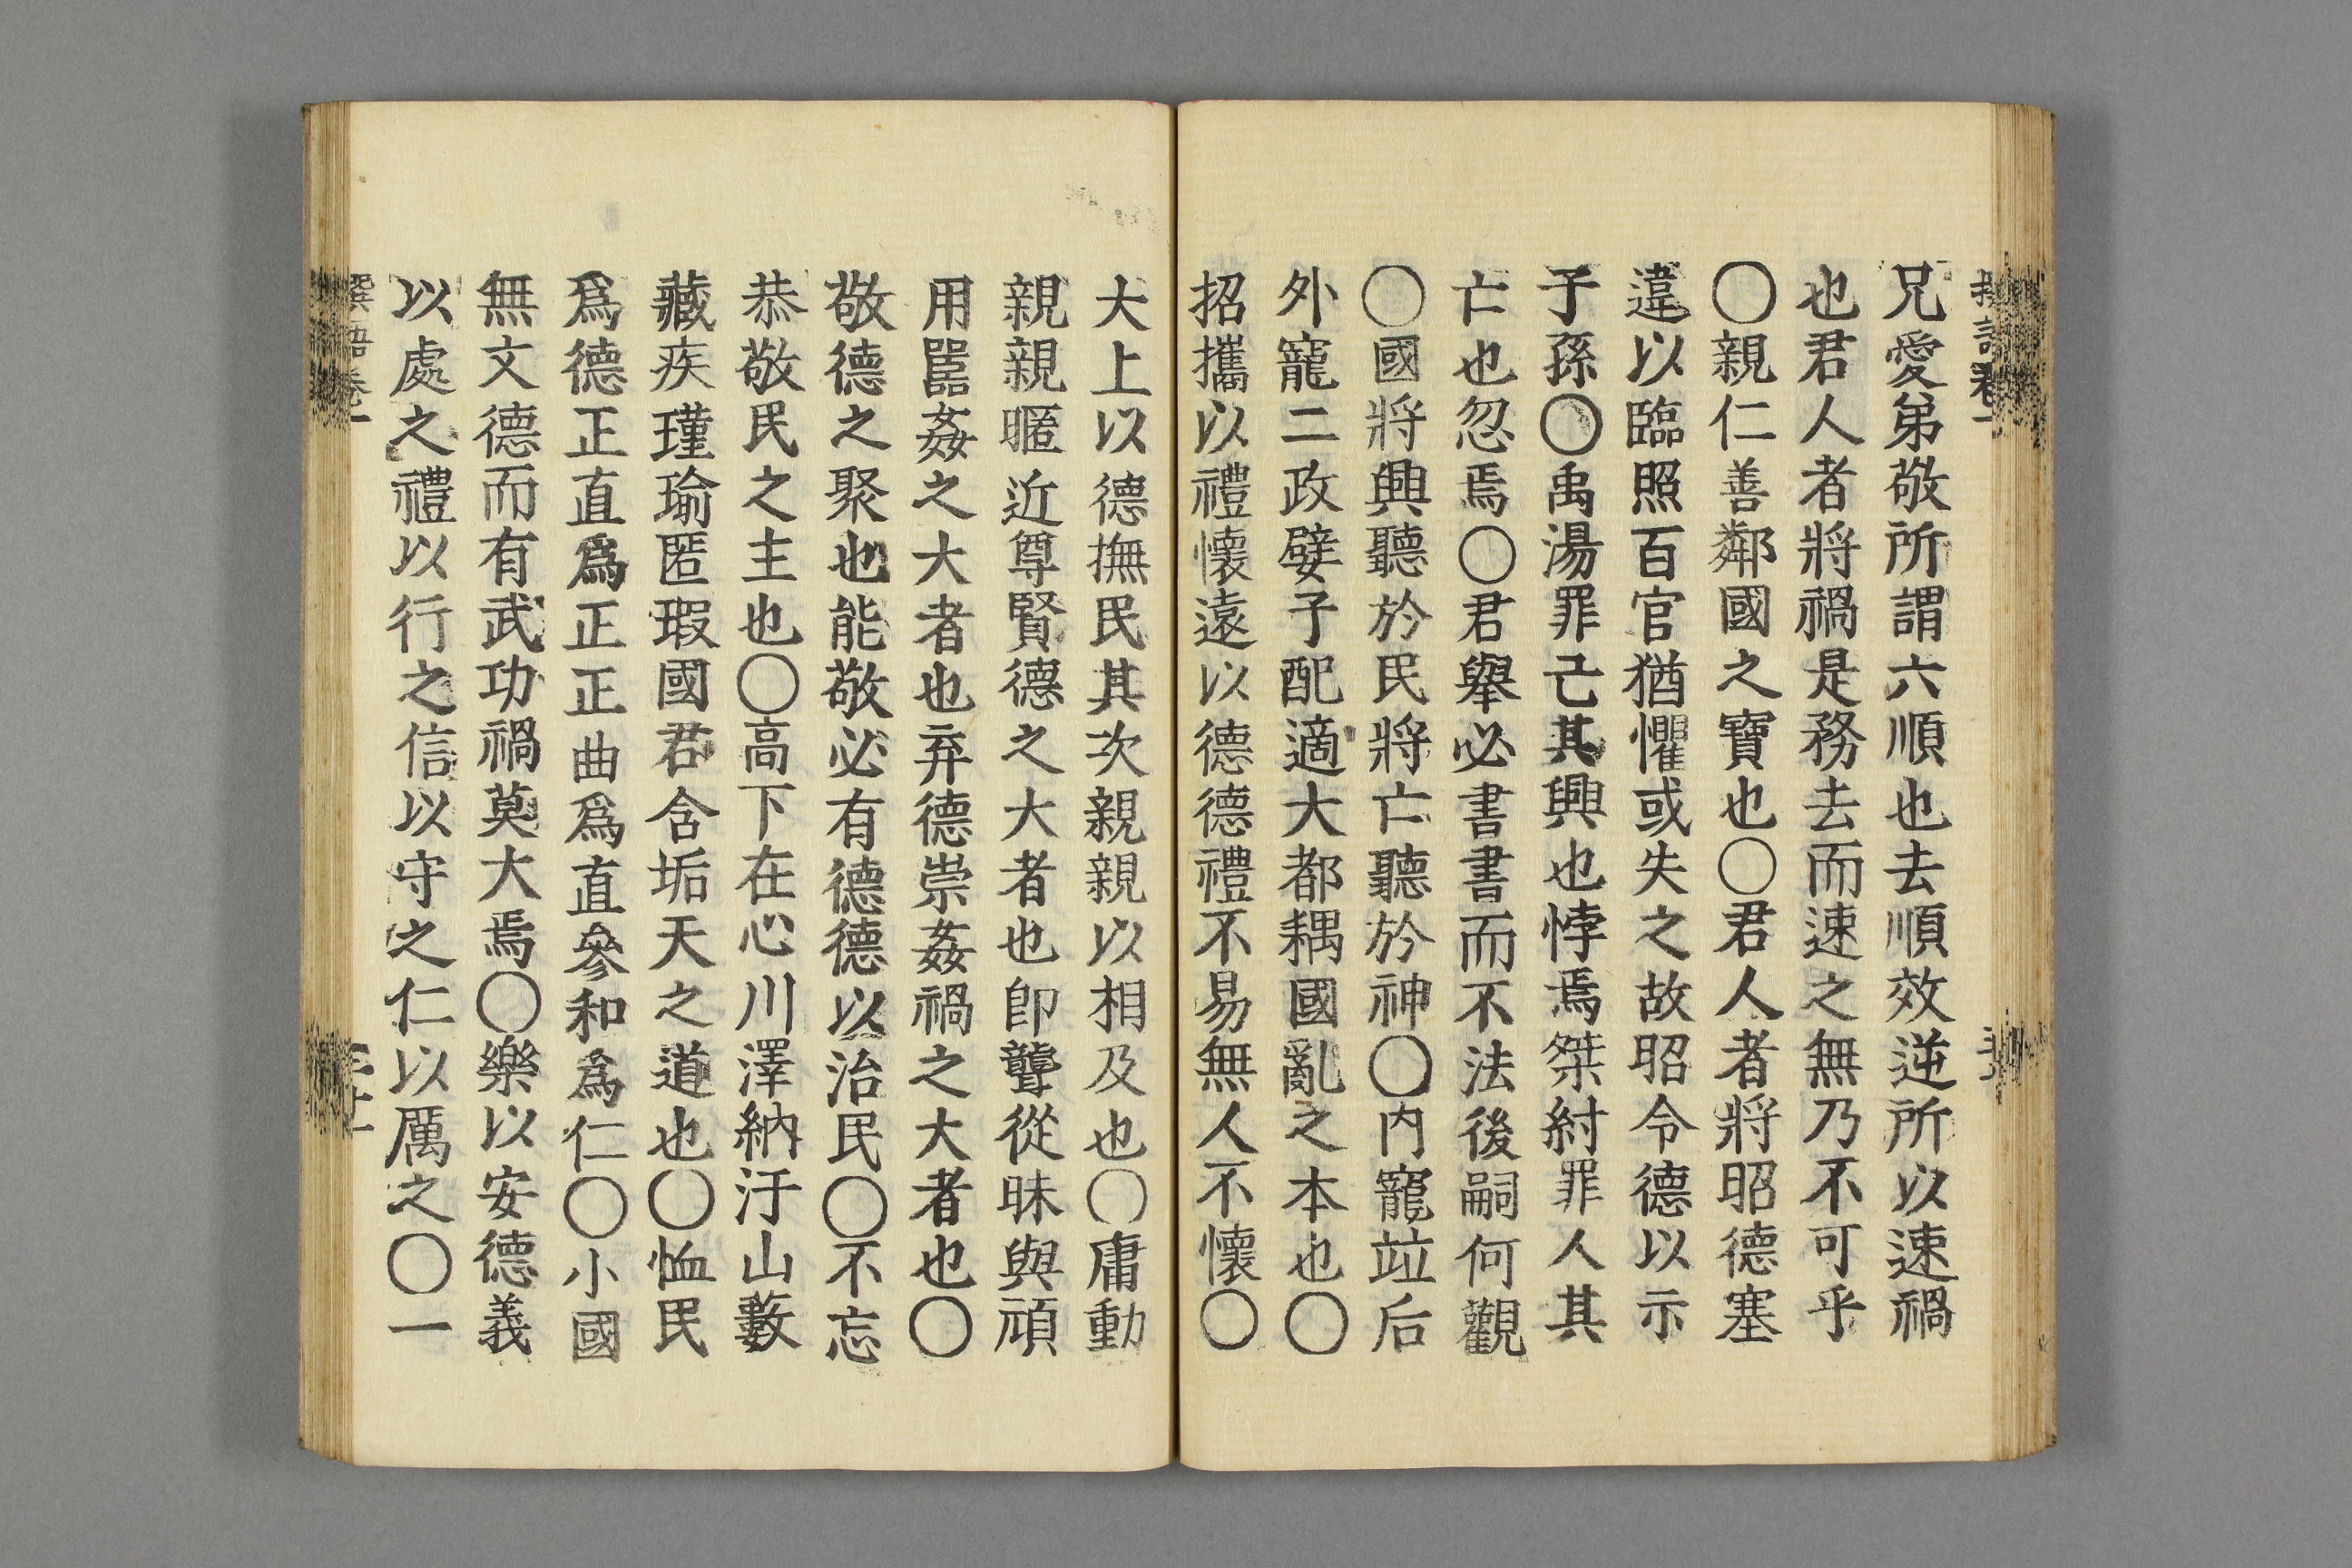 兄愛弟敬所謂六順也去順效逆所以速禍
也君人者將禍是務去而速之無乃不可乎
〇親仁善鄰國之寶也〇君人者將昭德塞
違以臨照百官猶懼或失之故昭令德以示
子孫〇禹湯罪己其興也悖焉桀紂罪人其
亡也忽焉〇君舉必書書而不法後嗣何觀
〇國將興聽於民將亡聽於神〇内寵竝后
外寵二政嬖子配適大都耦國亂之本也〇
招攜以禮懷遠以德德禮不易無人不懷〇
大上以德撫民其次親親以相及也〇庸動
親親暱近尊賢德之大者也卽聾從昧與頑
用嚚姦之大者也弃德崇姦禍之大者也〇
敬德之聚也能敬必有德德以治民〇不忘
恭敬民之主也〇高下在心川澤納汙山藪
藏疾瑾瑜匿瑕國君含垢天之道也〇恤民
爲德正直爲正正曲爲直參和爲仁〇小國
無文德而有武功禍莫大焉〇樂以安德義
以處之禮以行之信以守之仁以厲之〇一